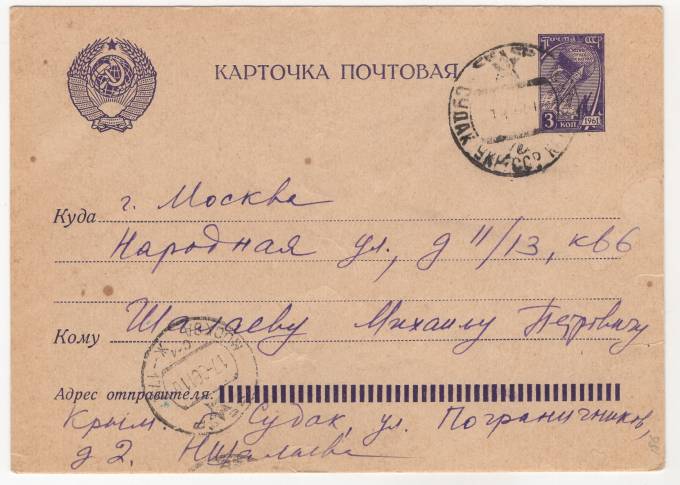 КАРТОЧКА ПОЧТОВАЯ
ПОЧТА СССР
3 КОП
1961
СУДАК УКР.ССР
Куда г. Москва
Народная ул., д 11/13, кв 6
Кому Шалаеву Михаилу Петровичу
МОСКВА
Адрес отправителя:
Крым Судак, ул. Пограничников,
д 2. Н. Шалаева